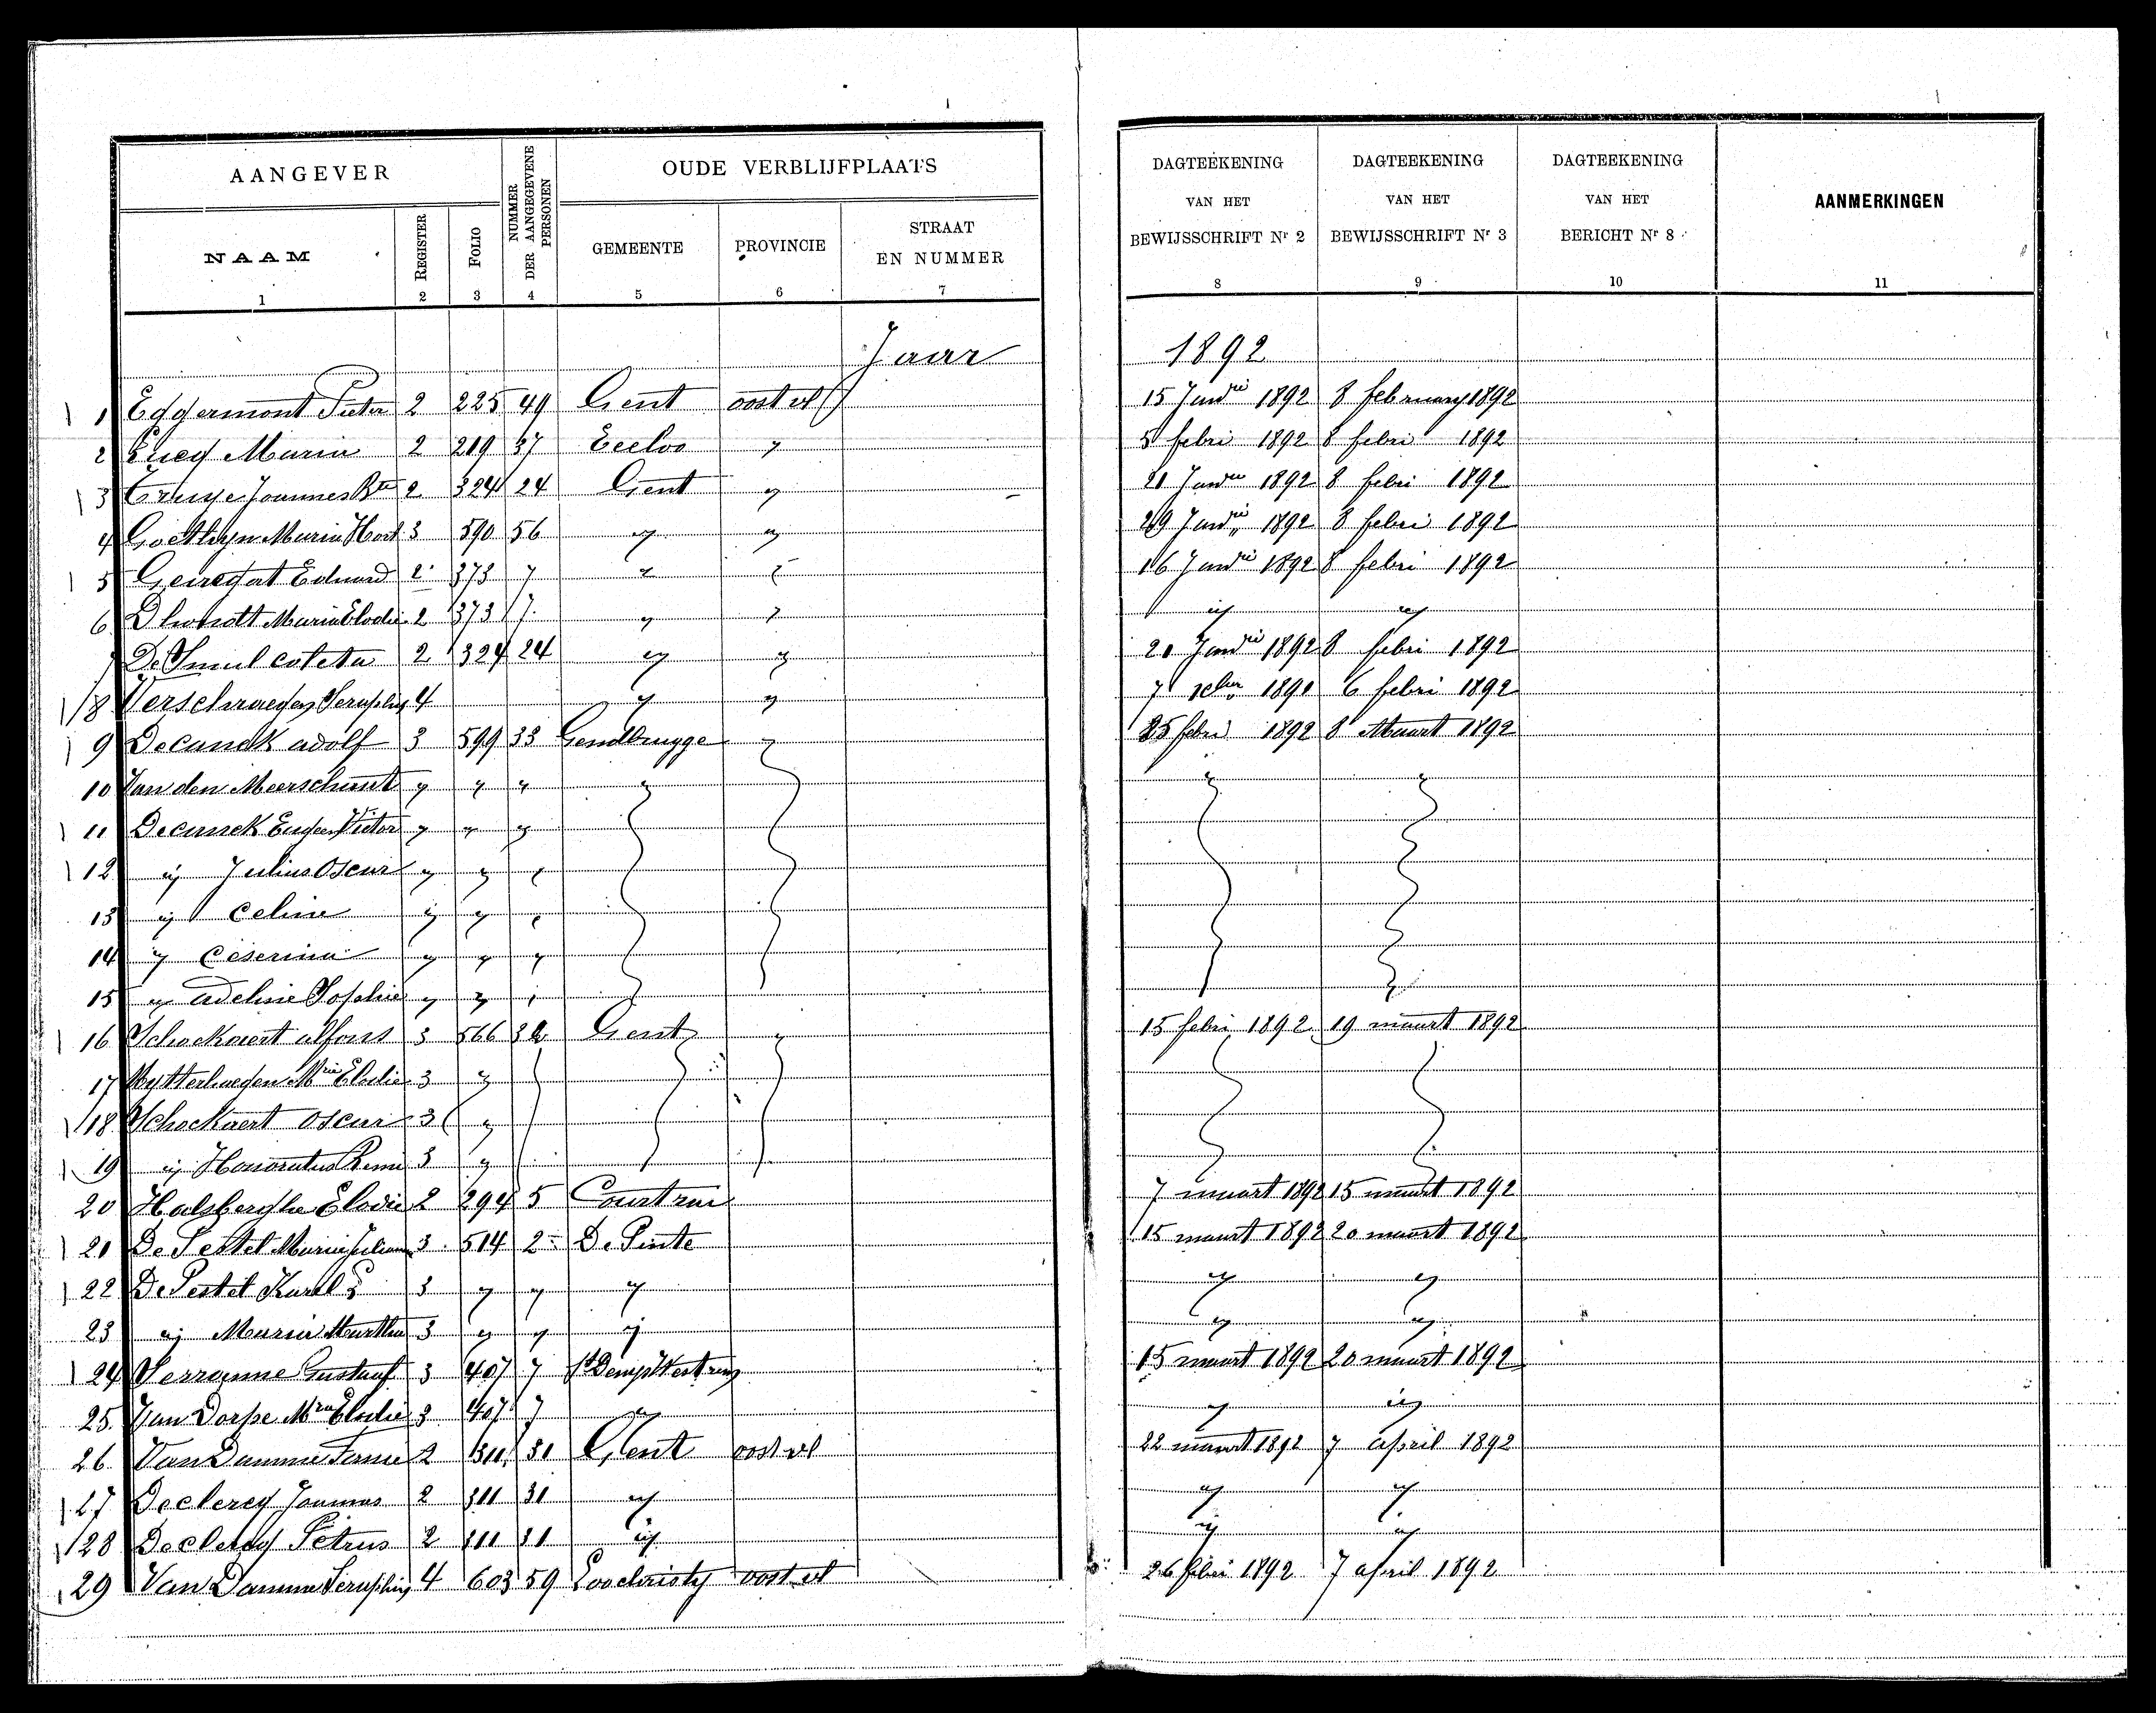 AANGEVER NUMMER DER AANGEGEVENE PERSONEN OUDE VERBLIJFPLAATS DAGTEEKENING VAN HET BEWIJSSCHRIFT Nr 2 DAGTEEKENING VAN HET BEWIJSSCHRIFT Nr 3 DAGTEEKENING VAN HET BERICHT Nr 8 AANMERKINGEN
NAAM REGISTER FOLIO GEMEENTE PROVINCIE STRAAT EN NUMMER
1 2 3 4 5 6 7 8 9 10 11
Jaar 1892
1 Eggermont Pieter 2 225 49 Gent oost vl 15 1892 8 february 1892
2 Maria 2 219 37 Eecloo " 5 febri 1892 8 febri 1892
3 Joannes Bte 2 324 24 Gent " 21 1892 8 febri 1892
4 Maria 3 590 56 " " 29 1892 8 febri 1892
5 Eduard 2 373 7 " " 16 1892 8 febri 1892
6 Dhondt Maria Elodie 2 373 7 " " " "
7 De Smul 2 324 24 " " 1892 8 febri 1892
8 4 " " 7 6 febri 1892
9 Decanck adolf 3 599 33 Gendbrugge " 25 febri 1892 8 Maart 1892
10 Van den Meerschaut " " " " " "
11 Decanck Victor " " "
12 " Julius Oscar " " "
13 " Celine " " "
14 " " " "
15 " adeline Sophie " " "
16 Schockaert alfons 3 566 Gent " 15 febri 1892 19 maart 1892
17 Elodie 3 "
18 Schockaert oscar 3 "
19 " Honoratus Remi 3 "
20 Halsberghe Elodie 2 294 5 Courtrai 7 maart 1892 15 maart 1892
21 De Pestel Maria 3 514 2 De Pinte 15 maart 1892 20 maart 1892
22 De Pestel Karel 3 " " " " "
23 " Maria Martha 3 " " " " "
24 Gustaaf 3 407 7 15 maart 1892 20 maart 1892
25 Van Dorpe Mria Elodie 3 407 7 " " "
26 Van Damme 2 311 31 Gent oost vl 22 maart 1892 7 april 1892
27 Declercq Joannes 2 311 31 " " "
28 Declercq Petrus 2 311 31 " " "
29 Van Damme 4 603 59 Loochristy oost vl 26 febri 1892 7 april 1892